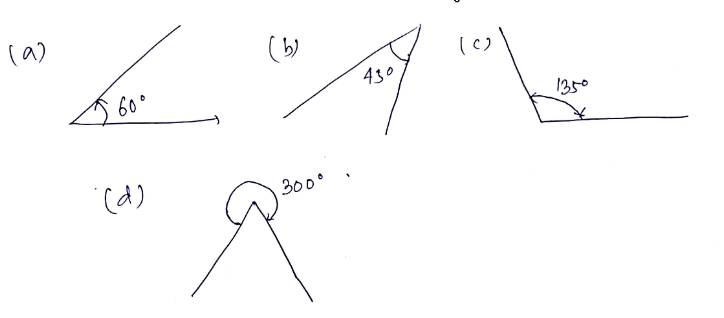 (a) 60°
(b) 430
(c) 135°
(d) 300°